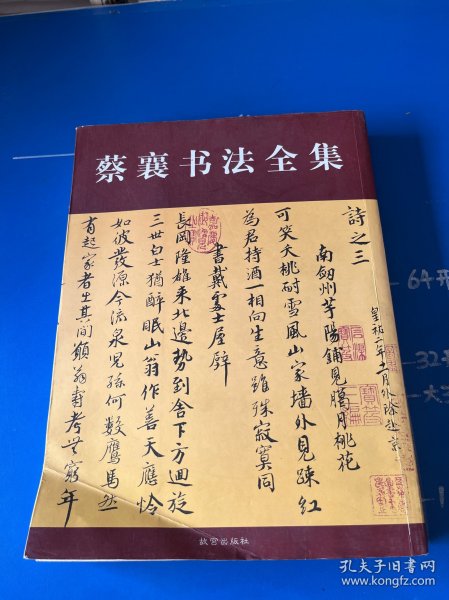 蔡襄书法全集
詩之三
南劒州芋陽鋪見臘月桃花
可笑夭桃耐雪風山家墻外見踈紅
為君持酒一相向生意雖殊寂寞同
書戴處士屋壁
長岡隆雄来北邊勢到舍下方迴旋
三世白士猶醉眠山翁作善天應怜
如彼發源今流泉兒孫何數鷹馬然
有起家者生其間願翁壽考無窮年
故宫出版社
64开
32开
孔夫子旧书网
www.kongfz.com